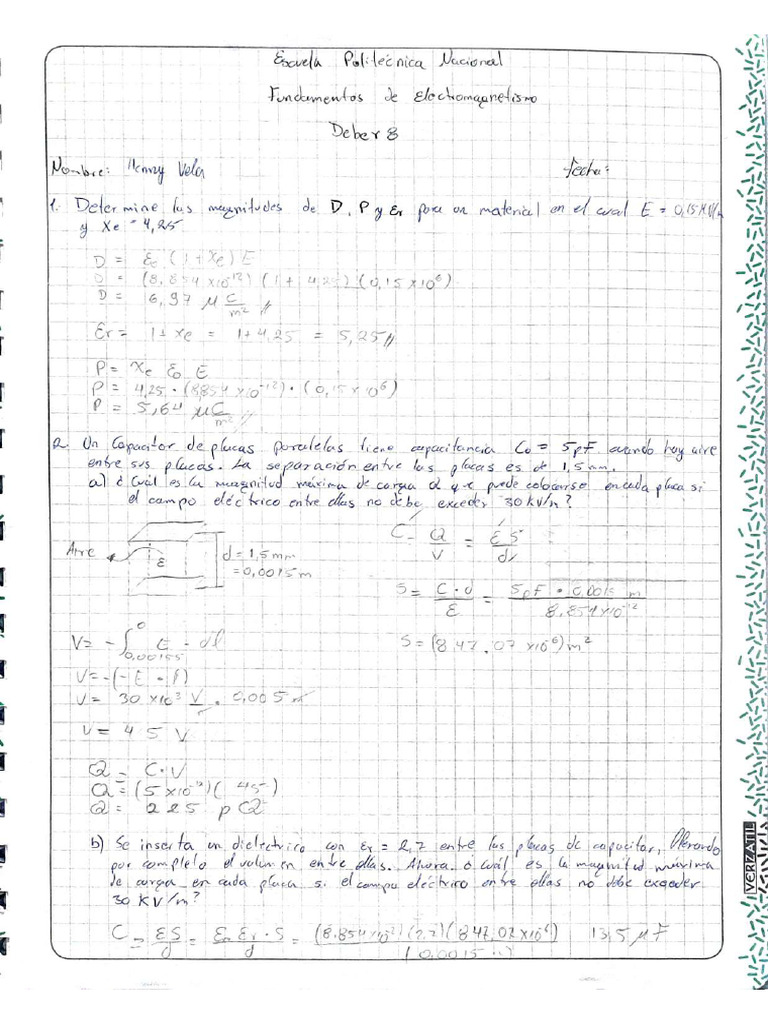 Escuela Politécnica Nacional
Fundamentos de Electromagnetismo
Deber 8
Nombre: Henry Vela Fecha:
1. Determine las magnitudes de D, P y Er para un material en el cual E = 0,15 MV/m
y Xe = 4,25
D = Eo (1+xe) E
D = (8,854 x10^-12) (1 + 4,25) (0,15 x10^6)
D = 6,97 μ C/m^2 //
Er = 1+xe = 1+4,25 = 5,25 //
P = Xe Eo E
P = 4,25 · (8,854 x10^-12) · (0,15 x 10^6)
P = 5,64 μ C/m^2 //
2. Un Capacitor de placas paralelas tiene capacitancia Co = 5pF cuando hay aire
entre sus placas. La separación entre las placas es de 1,5 mm.
a) ¿Cuál es la magnitud máxima de carga Q que puede colocarse en cada placa si
el campo eléctrico entre ellas no debe exceder 30 kV/m?
Aire E d = 1,5 mm
= 0,0015 m
C = Q/V = E S/d
S = C · d / E = 5pF · 0,0015 m / 8.854 x10^-12
S = (847,07 x10^-6) m^2
V = - ∫ E · dl
V = -(-E · l)
V = 30 x10^3 V/m · 0,005 m
V = 45 V
Q = C·V
Q = (5 x10^-12)( 45)
Q = 225 pC
b) Se inserta un dielectrico con Er = 2,7 entre las placas de capacitor, llenando
por completo el volumen entre ellas. Ahora. ¿ cuál es la magnitud máxima
de carga en cada placa si el campo eléctrico entre ellas no debe exceder
30 KV/m?
C = ES/d = Eo Er · S / d = (8.854 x10^-12) (2,7) (847,07 x10^-6) / (0,0015 m) 13,5 μF
VERIZATIL